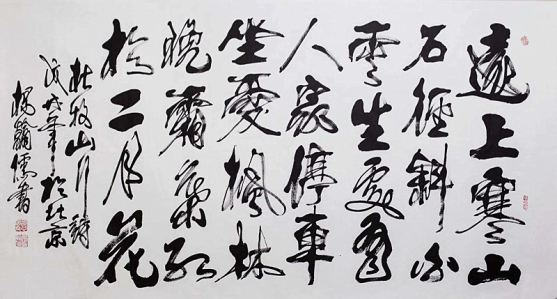 遠上寒山
石徑斜白
雲生處有
人家停車
坐愛楓林
晚霜葉紅
於二月花
杜牧山行詩
戊戌年於北京
儒書